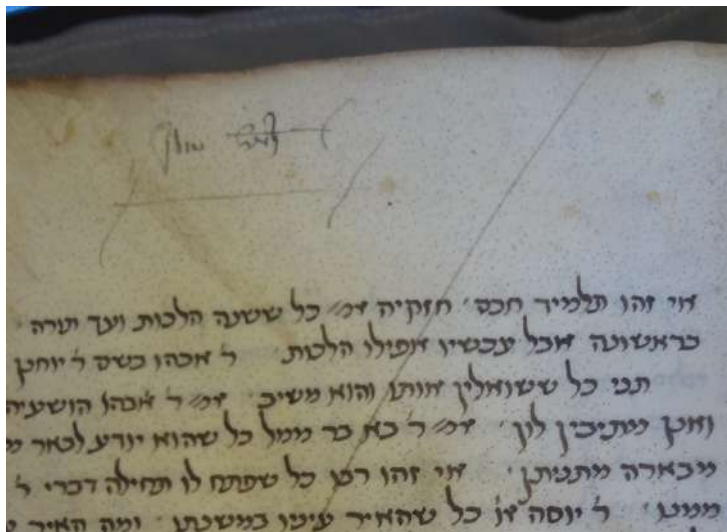 אי זהו תלמיד חכם חזקיה אמ' כל ששנה הלכות ועוד תורה
בראשונה אבל עכשיו אפילו הלכות ר' אבהו בשם ר' יוחנן
תני כל ששואלין אותו והוא משיב אמ' ר' אבהו הושעיה
ואנן מתיבין לון אמ' ר' בא בר ממל כל שהוא יודע לבאר
מבארה מתניתן אי זהו רבו כל שפתח לו תחילה דברי ר'
ר' יוסה או' כל שהאיר עיניו במשנתו ומה האיר